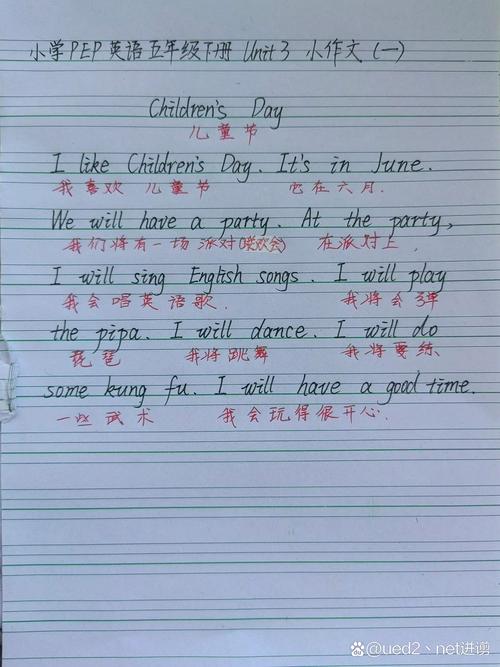 小学PEP英语五年级下册 Unit 3 小作文(一)
Children's Day
儿童节
I like Children's Day. It's in June.
我喜欢 儿童节 它在六月.
We will have a party. At the party,
我们将有一场派对(联欢会) 在派对上,
I will sing English songs. I will play
我会唱英语歌. 我将会弹
the pipa. I will dance. I will do
琵琶 我将跳舞 我将要练
some kung fu. I will have a good time.
一些武术 我会玩得很开心.
@ued2丶net进谢